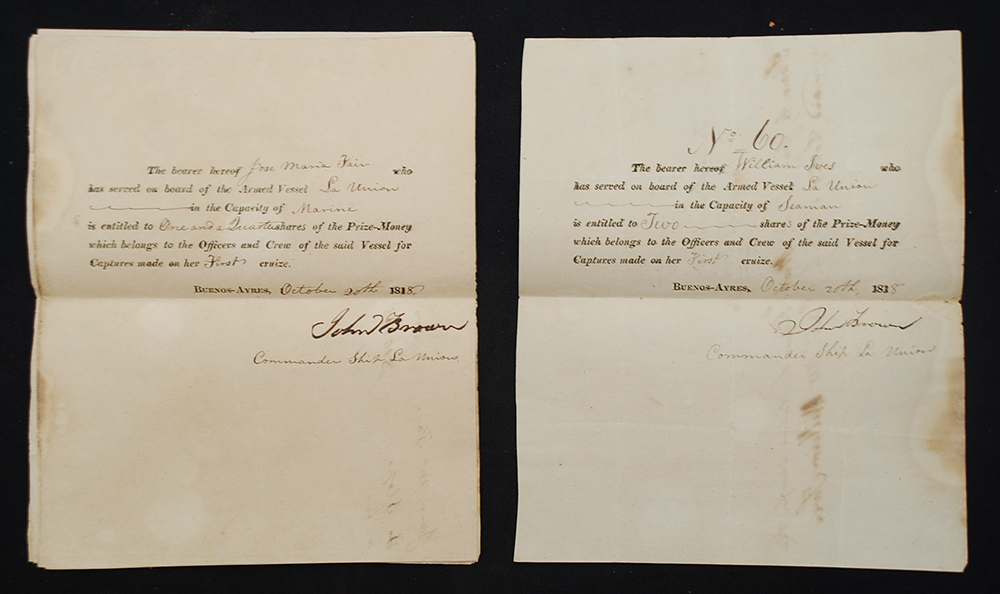 The bearer hereof Jose Maria Fair who
has served on board of the Armed Vessel La Union
in the Capacity of Marine
is entitled to One and a Quarter shares of the Prize-Money
which belongs to the Officers and Crew of the said Vessel for
Captures made on her First cruize.
Buenos-Ayres, October 20th 1818
John Brown
Commander Ship La Union.
No 60.
The bearer hereof William Ives who
has served on board of the Armed Vessel La Union
in the Capacity of Seaman
is entitled to Two shares of the Prize-Money
which belongs to the Officers and Crew of the said Vessel for
Captures made on her First cruize.
Buenos-Ayres, October 20th, 1818
John Brown
Commander Ship La Union